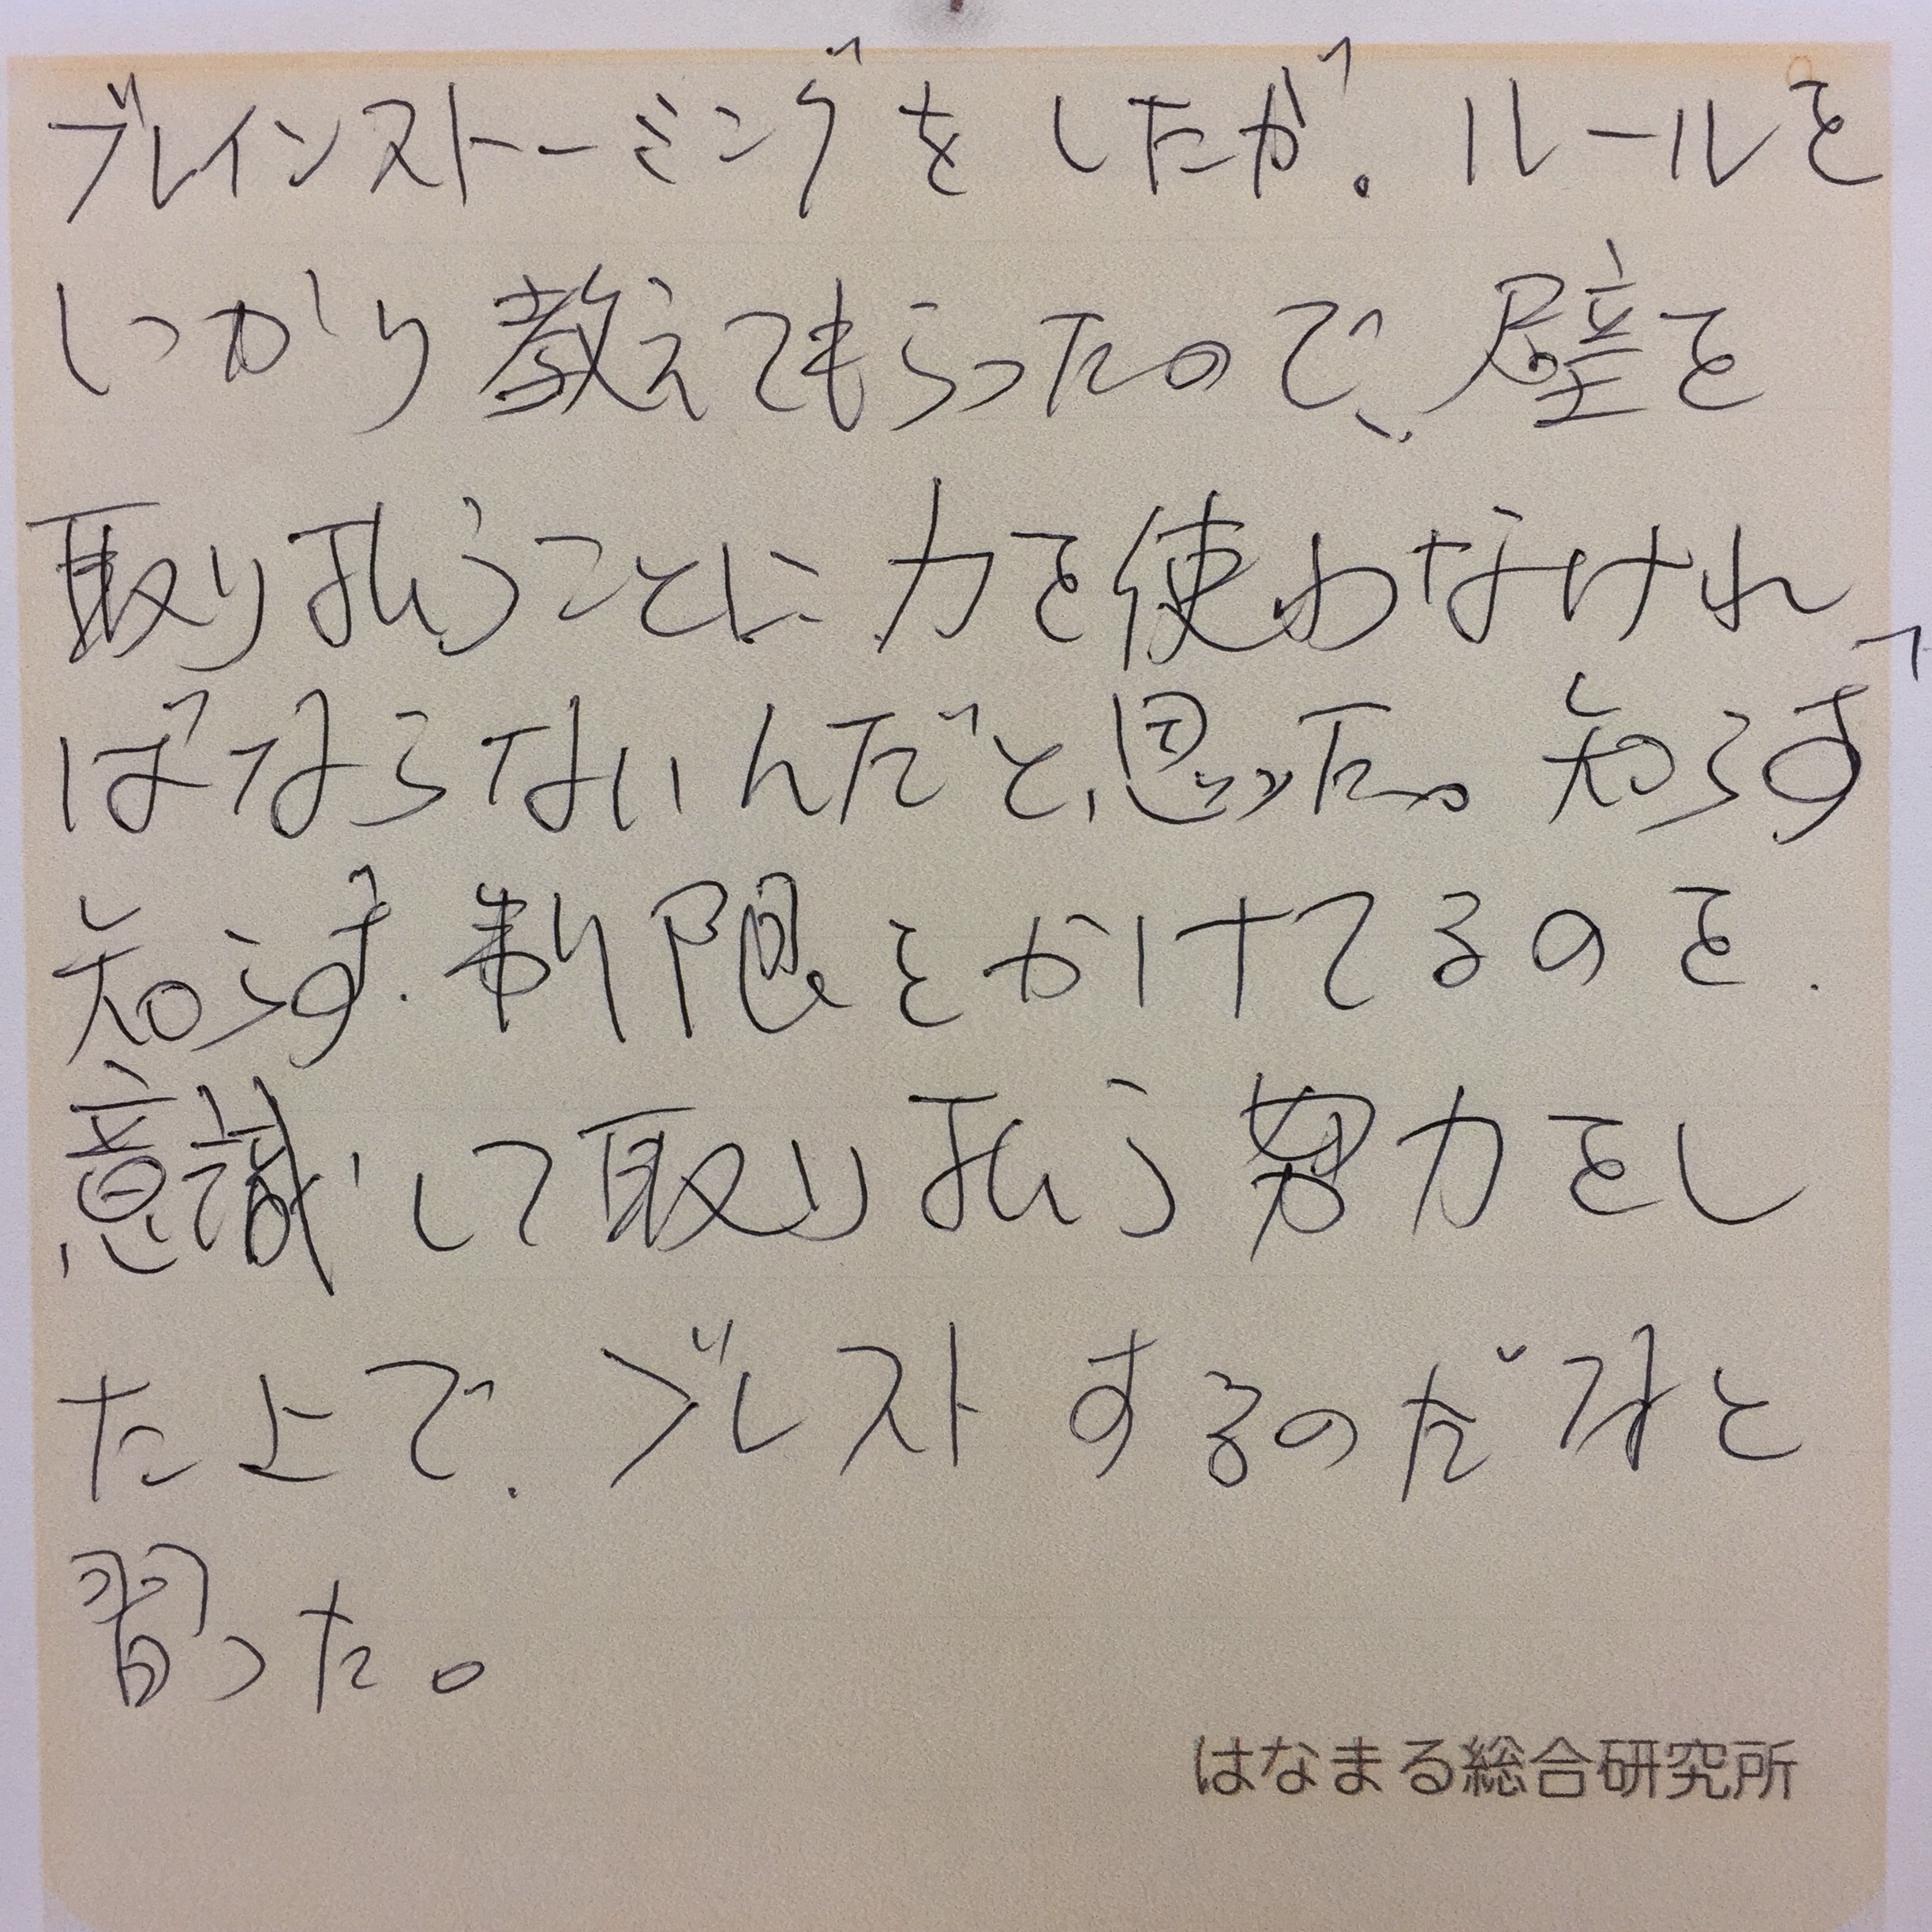 ブレインストーミングをしたが、ルールを
しっかり教えてもらったので、壁を
取り払うことに力を使わなけれ
ばならないんだと思った。知らず
知らず、制限をかけてるのを、
意識して取り払う努力をし
た上で、ブレストするのだねと
習った。
はなまる総合研究所